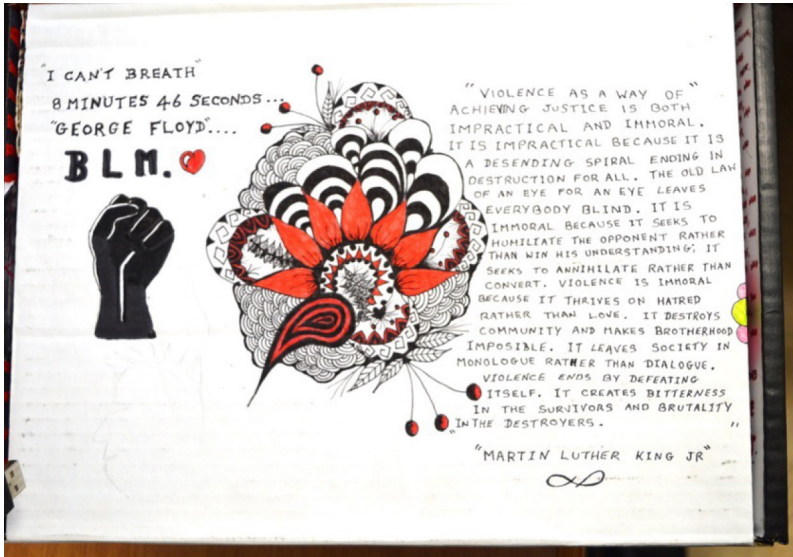 "I CAN'T BREATH"
8 MINUTES 46 SECONDS...
"GEORGE FLOYD"....
BLM.
"VIOLENCE AS A WAY OF"
ACHIEVING JUSTICE IS BOTH
IMPRACTICAL AND IMMORAL.
IT IS IMPRACTICAL BECAUSE IT IS
A DESENDING SPIRAL ENDING IN
DESTRUCTION FOR ALL. THE OLD LAW
OF AN EYE FOR AN EYE LEAVES
EVERYBODY BLIND. IT IS
IMMORAL BECAUSE IT SEEKS TO
HUMILIATE THE OPPONENT RATHER
THAN WIN HIS UNDERSTANDING: IT
SEEKS TO ANNIHILATE RATHER THAN
CONVERT. VIOLENCE IS IMMORAL
BECAUSE IT THRIVES ON HATRED
RATHER THAN LOVE. IT DESTROYS
COMMUNITY AND MAKES BROTHERHOOD
IMPOSIBLE. IT LEAVES SOCIETY IN
MONOLOGUE RATHER THAN DIALOGUE.
VIOLENCE ENDS BY DEFEATING
ITSELF. IT CREATES BITTERNESS
IN THE SURVIVORS AND BRUTALITY
"IN THE DESTROYERS. "
"MARTIN LUTHER KING JR"